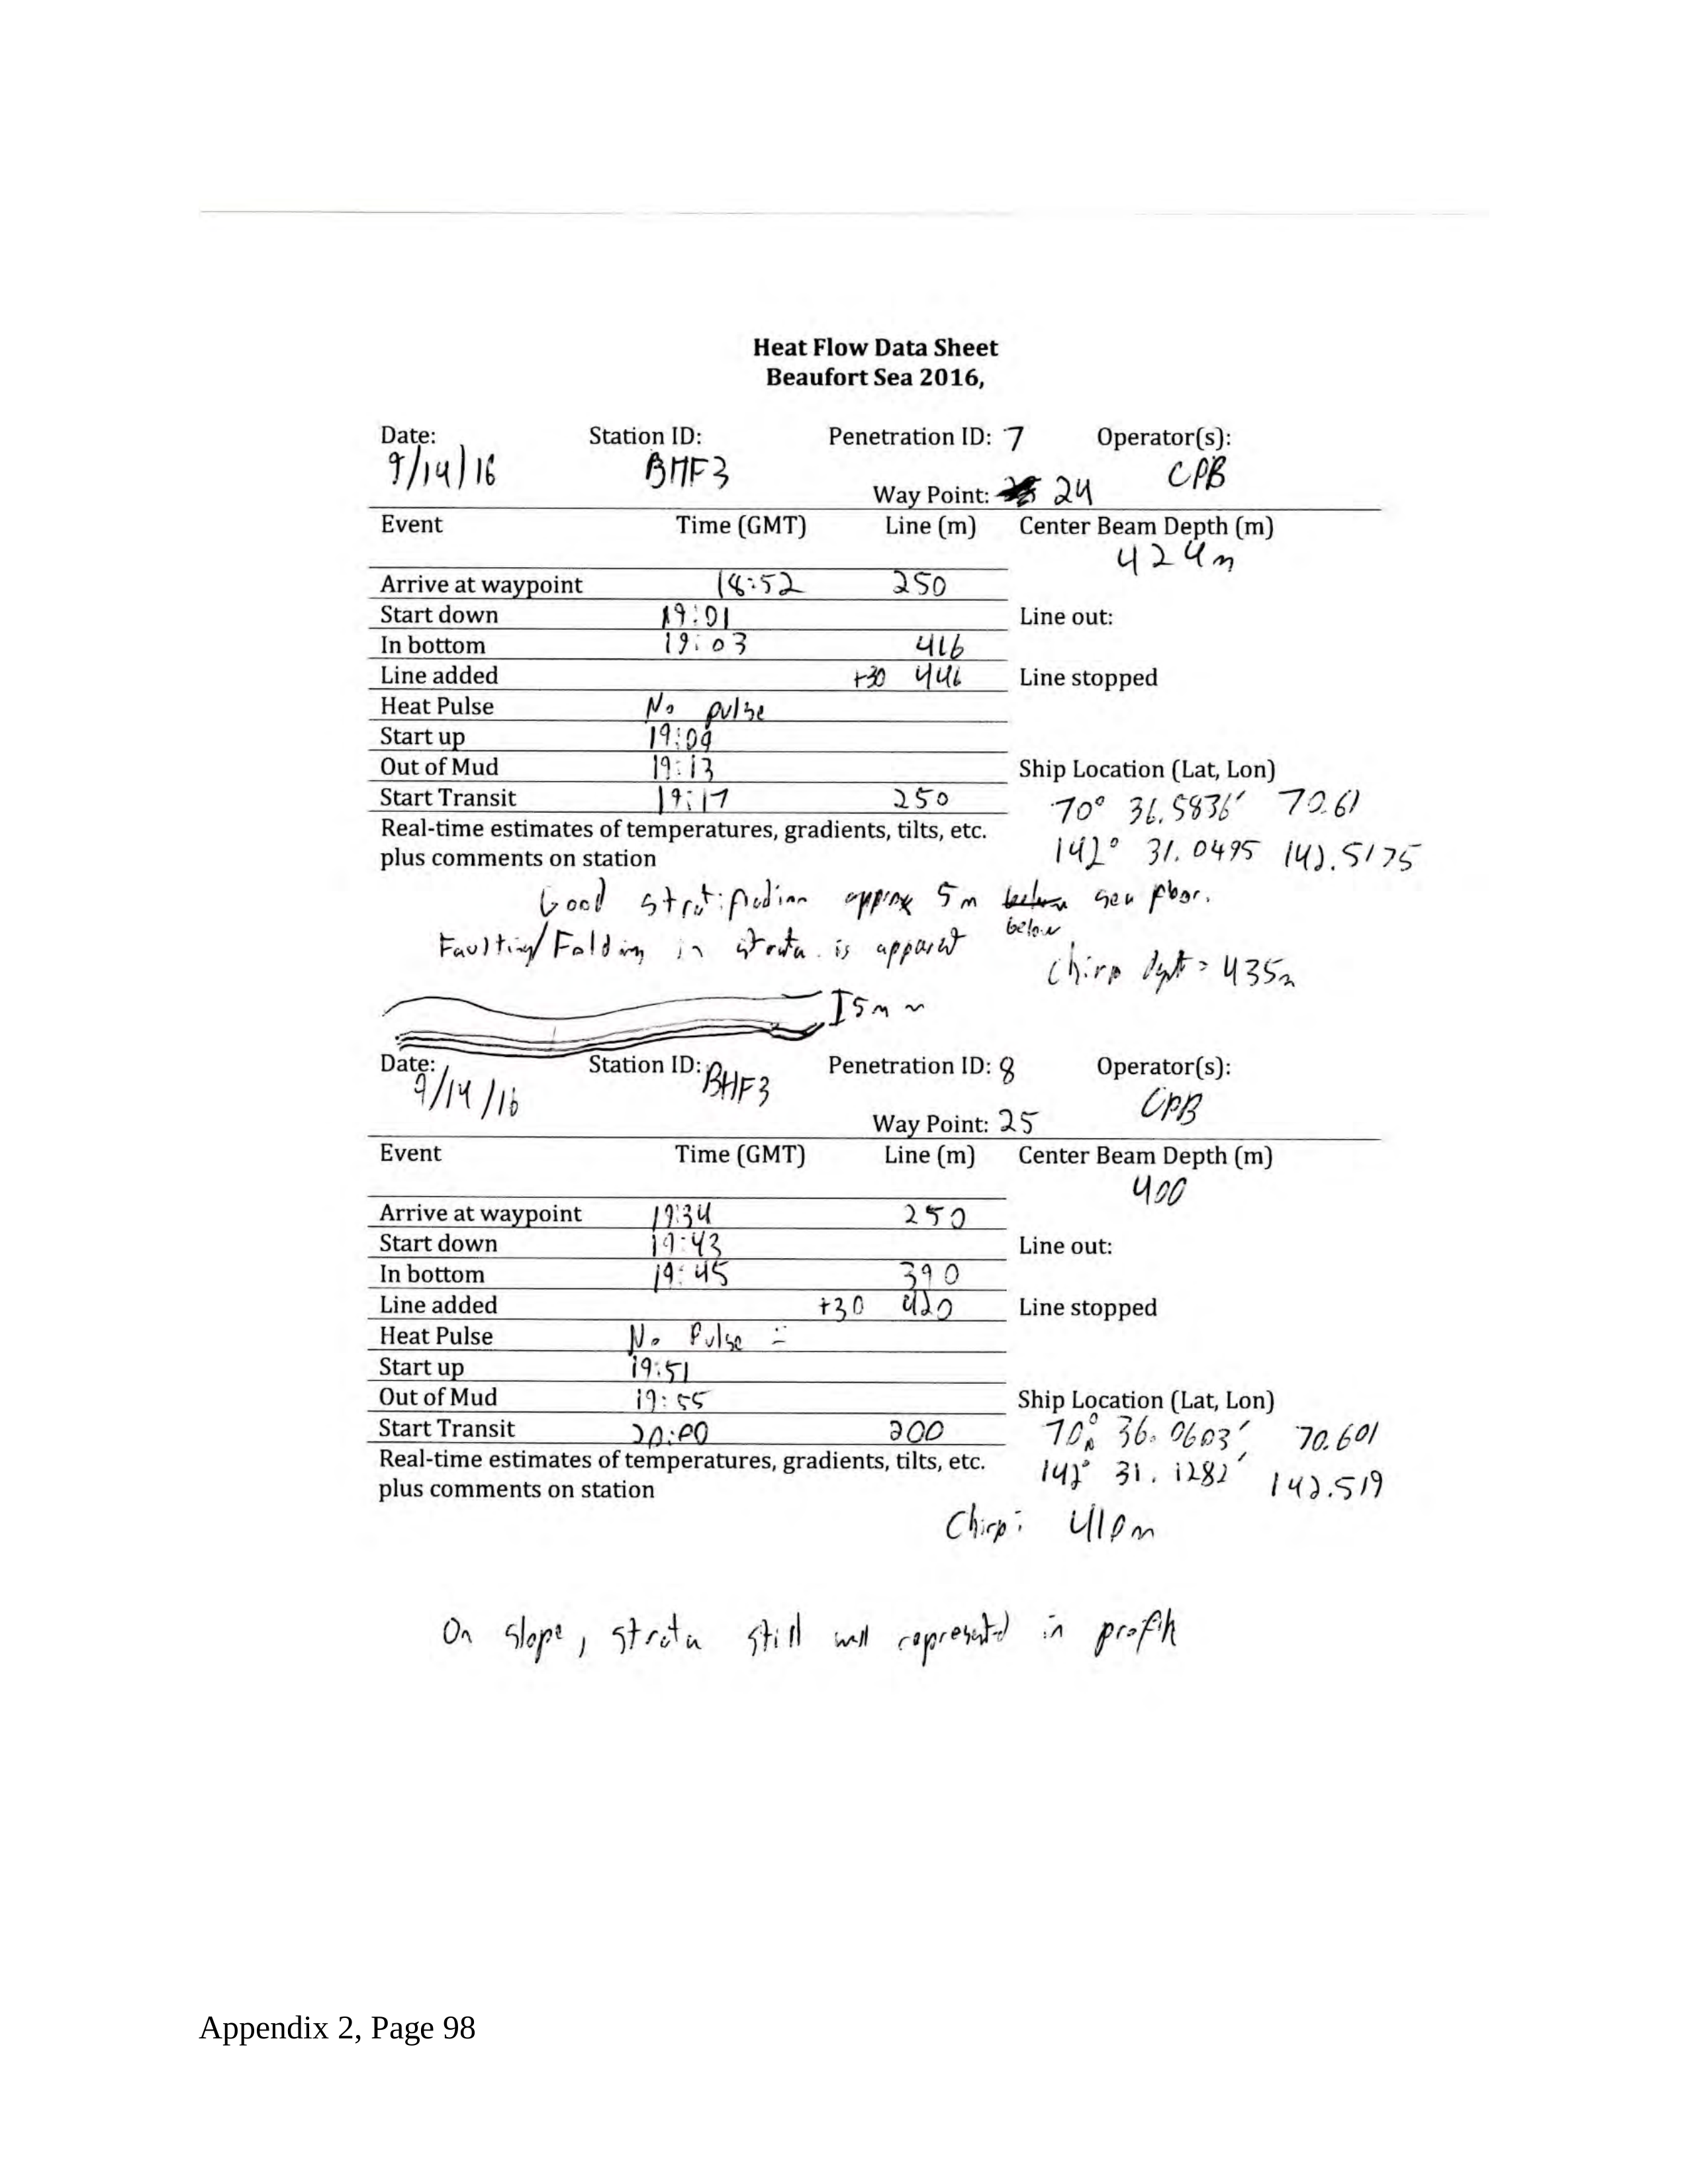 Heat Flow Data Sheet
Beaufort Sea 2016,
Date: Station ID: Penetration ID: 7 Operator(s):
9/14/16 BHF3 CPB
Way Point: 24
Event Time (GMT) Line (m) Center Beam Depth (m)
424m
Arrive at waypoint 18:52 250
Start down 19:01 Line out:
In bottom 19:03 416
Line added +30 446 Line stopped
Heat Pulse No pulse
Start up 19:09
Out of Mud 19:13 Ship Location (Lat, Lon)
Start Transit 19:17 250 70° 36.5836' 70.61
Real-time estimates of temperatures, gradients, tilts, etc.
142° 31.0495 142.5175
plus comments on station
Good stratification approx 5m below sea floor.
below
Faulting/Folding in strata is apparent
Chirp dpt = 435m
5m ~
Date: Station ID: BHF3 Penetration ID: 8 Operator(s):
9/14/16 CPB
Way Point: 25
Event Time (GMT) Line (m) Center Beam Depth (m)
400
Arrive at waypoint 19:34 250
Start down 19:43 Line out:
In bottom 19:45 390
Line added +30 420 Line stopped
Heat Pulse No Pulse
Start up 19:51
Out of Mud 19:55 Ship Location (Lat, Lon)
Start Transit 20:00 200 70° 36.0603' 70.601
Real-time estimates of temperatures, gradients, tilts, etc.
142° 31.1282' 142.519
plus comments on station
Chirp: 410m
On slope, strata still well represented in profile
Appendix 2, Page 98